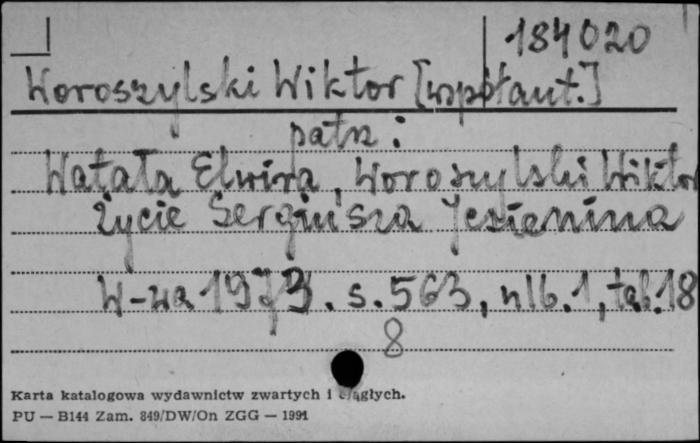 184020
Woroszylski Wiktor [współaut.]
patrz:
Watała Elwira, Woroszylski Wiktor
Życie Sergiusza Jesienina
W-wa 1973. s. 563, nlb. 1, tab. 18
8
Karta katalogowa wydawnictw zwartych i ciągłych.
PU — B144 Zam. 849/DW/On ZGG — 1991